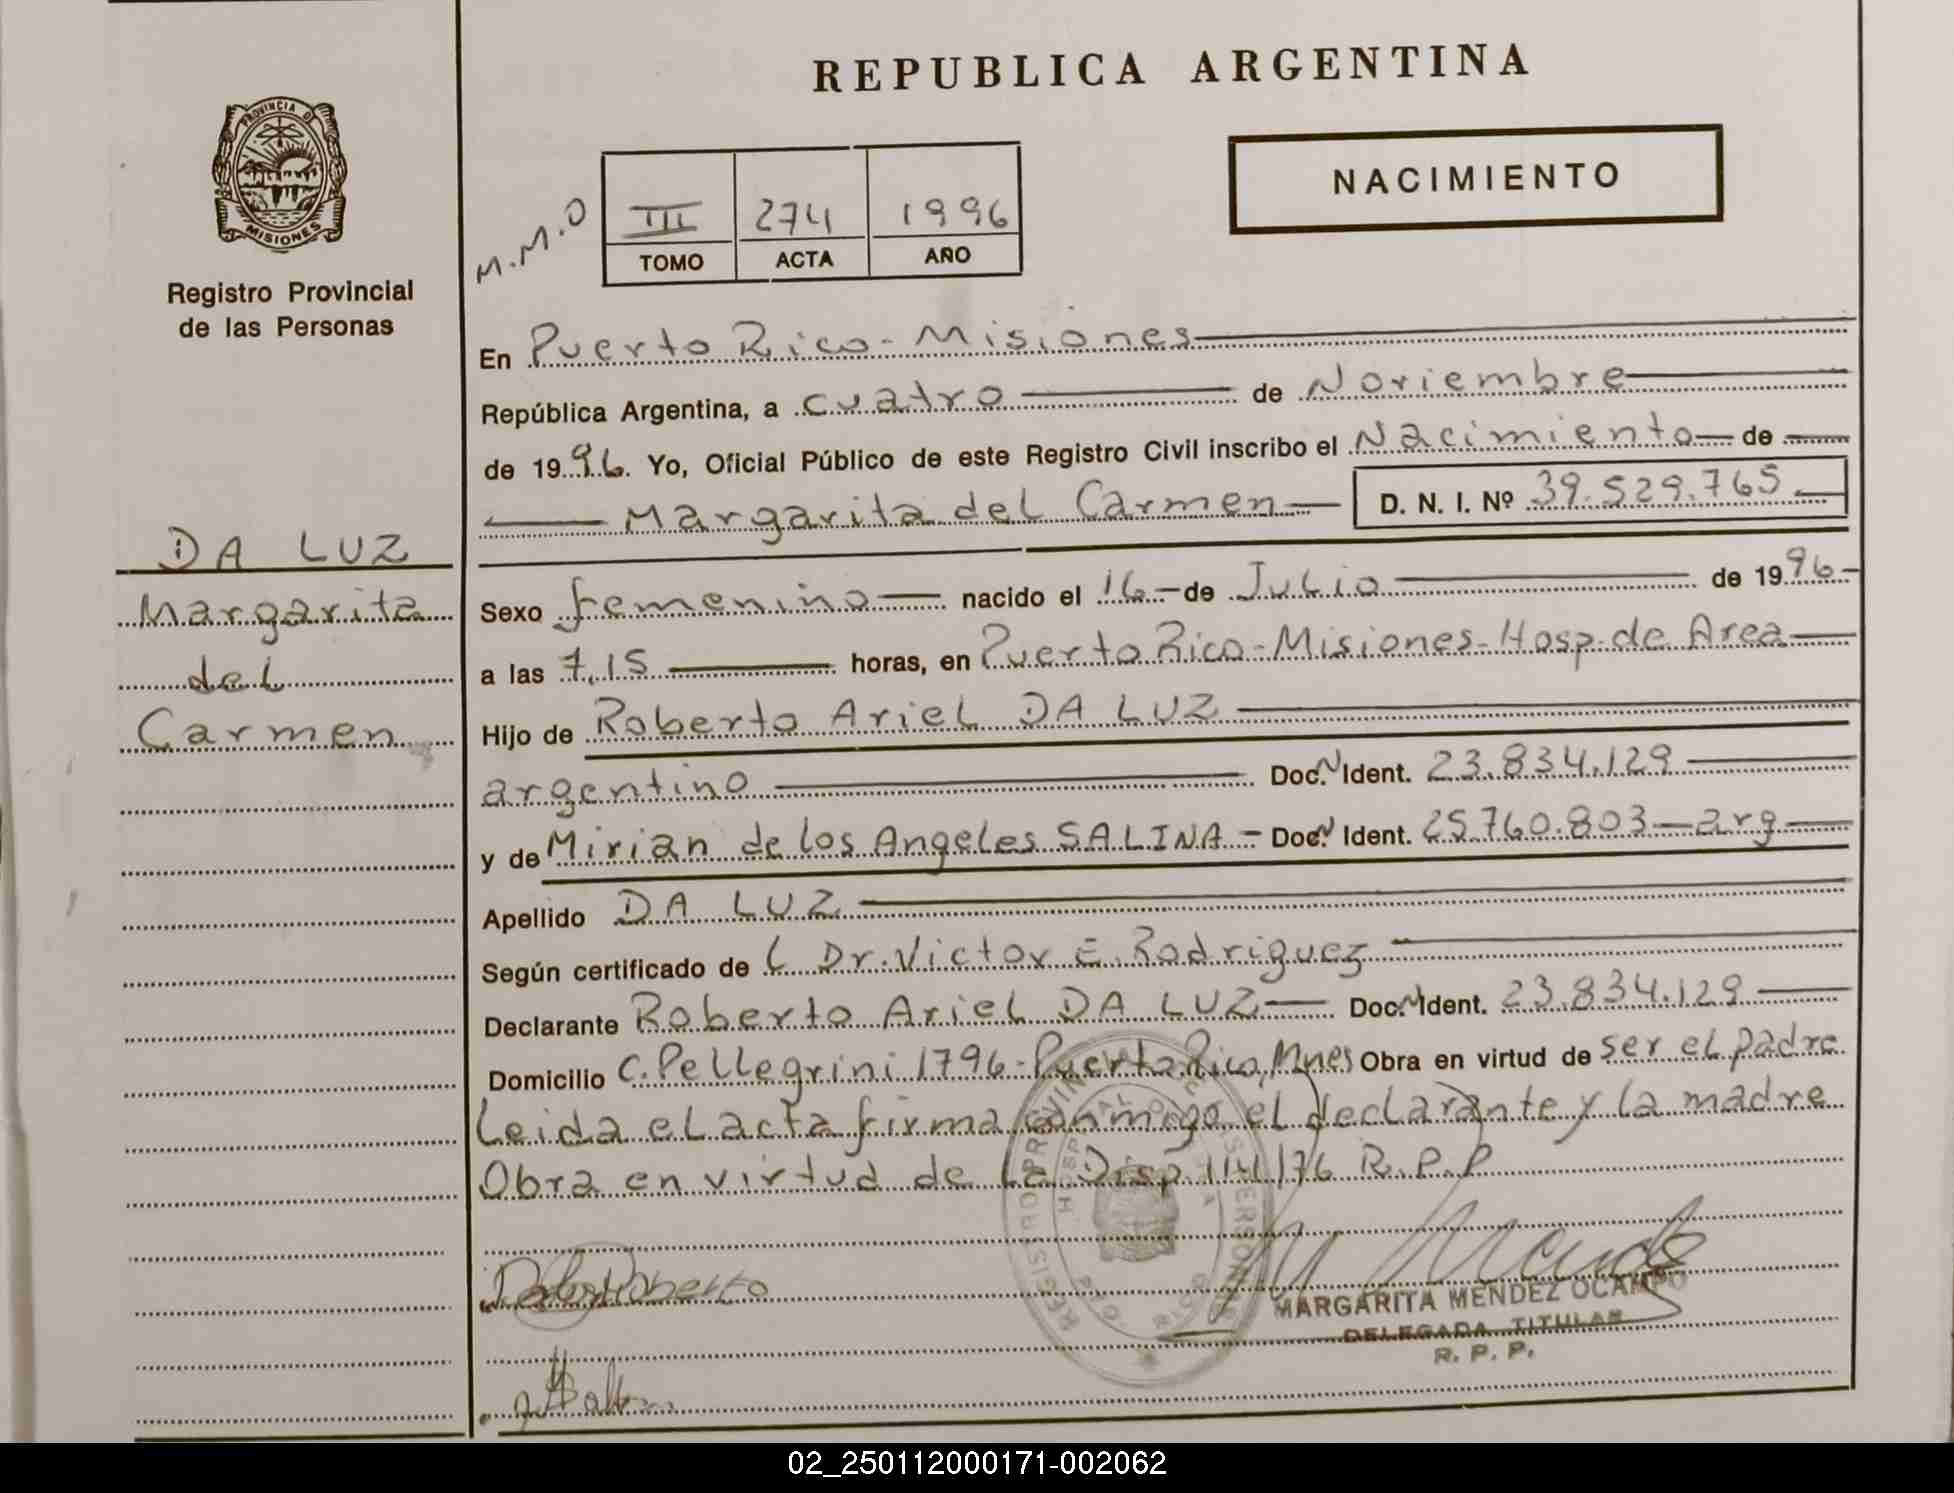 REPUBLICA ARGENTINA
PROVINCIA DE
MISIONES
Registro Provincial
de las Personas
NACIMIENTO
M.M.O
III 274 1996
TOMO ACTA AÑO
En Puerto Rico - Misiones
República Argentina, a cuatro de Noviembre
de 1996. Yo, Oficial Público de este Registro Civil inscribo el Nacimiento de
Margarita del Carmen D. N. I. Nº 39.529.765
DA LUZ
Margarita
del
Carmen
Sexo femenino nacido el 16 de Julio de 1996
a las 7,15 horas, en Puerto Rico - Misiones - Hosp. de Area
Hijo de Roberto Ariel DA LUZ
argentino Doc. N Ident. 23.834.129
y de Mirian de los Angeles SALINA - Doc. N Ident. 25.760.803 - arg
Apellido DA LUZ
Según certificado de L Dr. Victor E. Rodriguez
Declarante Roberto Ariel DA LUZ Doc. N Ident. 23.834.129
Domicilio C. Pellegrini 1796 - Puerto Rico, Mnes Obra en virtud de ser el padre
Leida el acta firma conmigo el declarante y la madre
Obra en virtud de la Disp 114/76 R.P.P
MARGARITA MENDEZ OCAMPO
DELEGADA TITULAR
R. P. P.
02_250112000171-002062